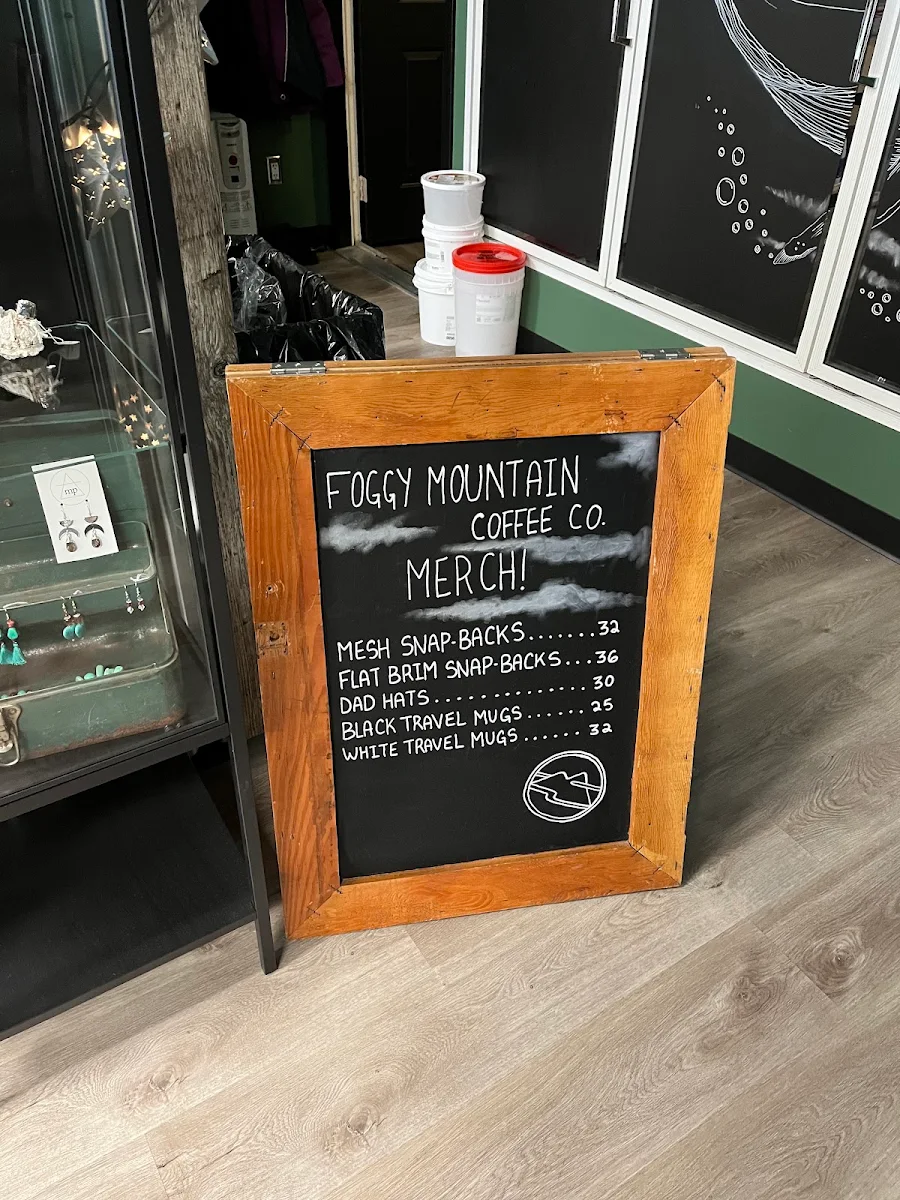 FOGGY MOUNTAIN
COFFEE CO.
MERCH!
MESH SNAP-BACKS.......32
FLAT BRIM SNAP-BACKS...36
DAD HATS..............30
BLACK TRAVEL MUGS......25
WHITE TRAVEL MUGS......32
mp